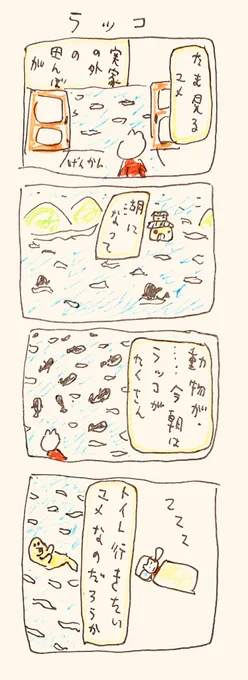 ラッコ
たま見る
ユメ
実家
の外
の
田んぼ
が
げんかん
湖に
なって
動物が・
……今朝は
ラッコが
たくさん
てててて
トイレ行きたい
ユメなのだろうか